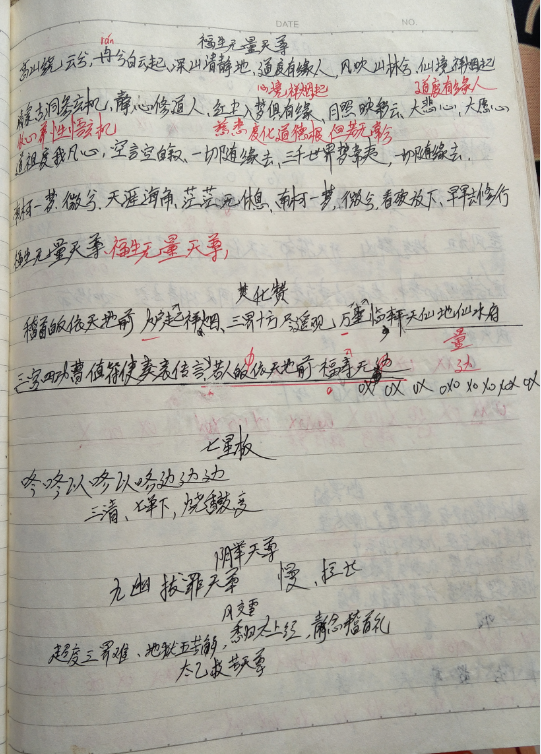 DATE NO.
福生无量天尊
高山绕上云兮,冉兮白云起,深山清静地,道度有缘人,风吹山林兮,仙境祥烟起
ran
心境祥烟起 道度有缘人
洞参玄机,静心修道人,红尘入梦俱有缘,月照映彩云,大慈心,大愿心
修心养性悟玄机 慈悲度化道德根
道祖度我凡心,空言空白叙,一切随缘去,三千世界梦常走,一切随缘去.
南柯一梦.微兮.天涯海角,茫茫无休息,南柯一梦.微兮.看破放下,早早去修行
福生无量天尊.福生无量天尊,
焚化赞
稽首皈依天地前,炉起祥烟,三界十方尽遥观,万灵临轩天仙地仙水府
量
三官四功曹值符使奏表传言 皈依天地前 福寿无
七星板
咚咚以咚以咚边边边
三清、七单下,烧香
阴举天尊
九幽拔罪天尊 慢、拉长
风交雪
超度三界难、地狱五苦解,悉归太上经,静念稽首礼
太乙救苦天尊